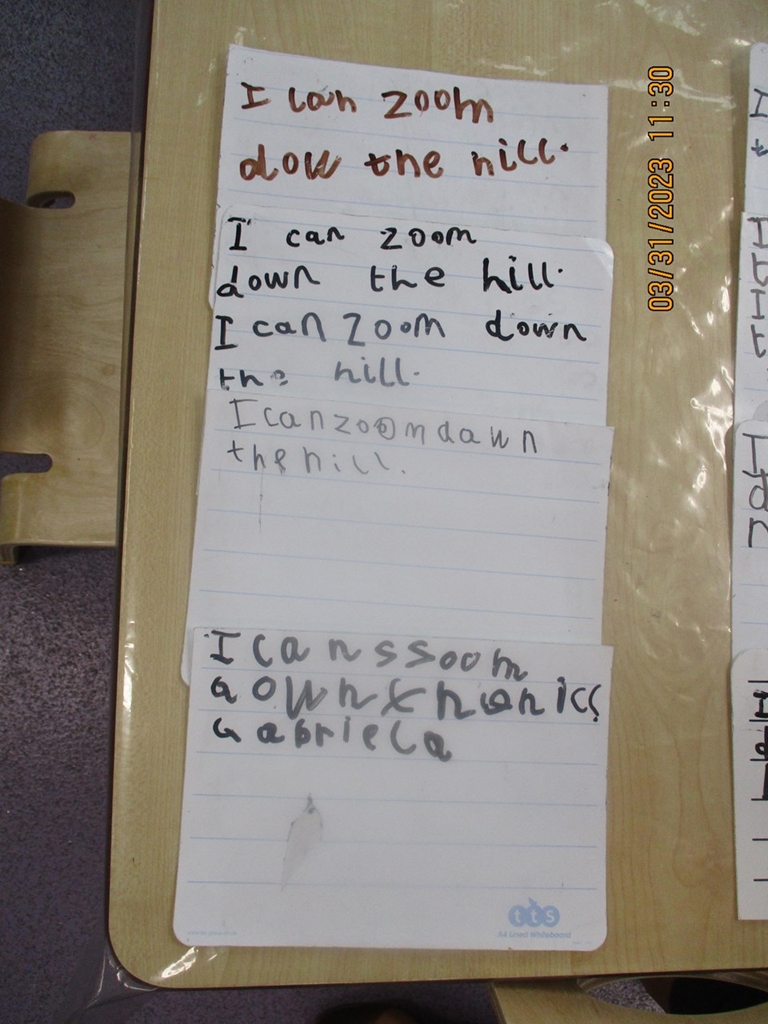 I can zoom
dow the hill.
I can zoom
down the hill.
I can zoom down
the hill.
I can zoom dawn
the hill.
I can ssoom
Gabriela
tts
A4 Lined Whiteboard
03/31/2023 11:30